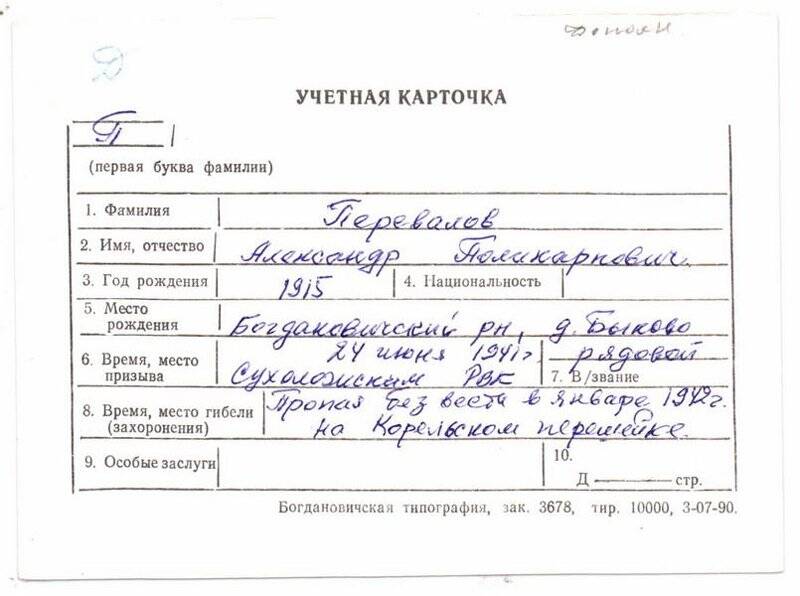 Дополн
Д
УЧЕТНАЯ КАРТОЧКА
П
(первая буква фамилии)
1. Фамилия Перевалов
2. Имя, отчество Александр Поликарпович.
3. Год рождения 1915 4. Национальность
5. Место рождения Богдановичский рн, д. Быково
6. Время, место призыва 24 июня 1941г. Сухоложским РВК
рядовой
7. В/звание
8. Время, место гибели (захоронения) Пропал без вести в январе 1942г.
на Корельском перешейке.
9. Особые заслуги
10.
Д — стр.
Богдановичская типография, зак. 3678, тир. 10000, 3-07-90.